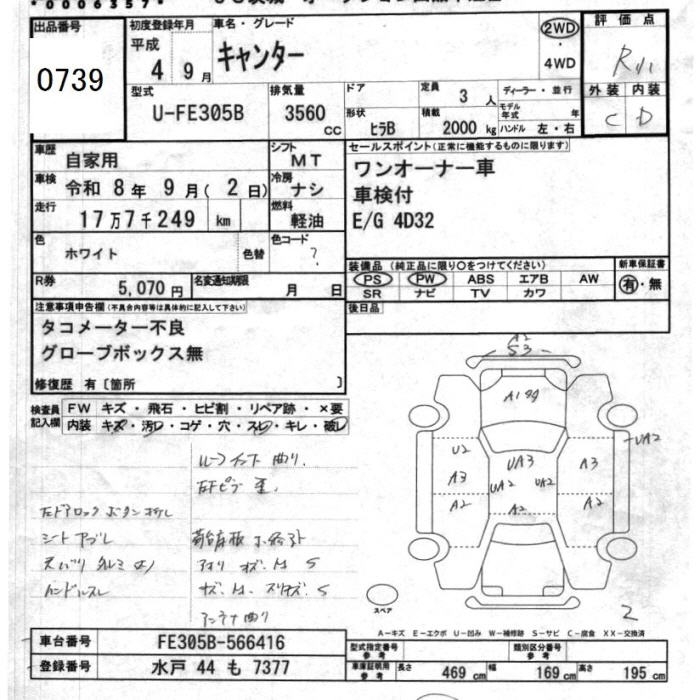 出品番号
0739
初度登録年月
平成
4 9月
車名・グレード
キャンター
2WD
・
4WD
評価点
外装 内装
C D
型式
U-FE305B
排気量
3560 cc
ドア
形状
ヒラB
定員
3 人
積載
2000 kg
ディーラー・並行
モデル年式 年
ハンドル 左・右
車歴
自家用
シフト
MT
車検
令和 8年 9月( 2日)
冷房
ナシ
走行
17万7千249 km
燃料
軽油
色
ホワイト
色替
色コード
?
R券
5,070円
名変通知期限
月 日
セールスポイント(正常に機能するものに限ります)
ワンオーナー車
車検付
E/G 4D32
装備品 (純正品に限り〇をつけてください)
PS PW ABS エアB AW
SR ナビ TV カワ
新車保証書
有・無
後日品
注意事項申告欄(不具合内容等は具体的に記入して下さい)
タコメーター不良
グローブボックス無
修復歴 有〔箇所 〕
検査員
記入欄
FW キズ・飛石・ヒビ割・リペア跡・×要
内装 キズ・汚レ・コゲ・穴・スレ・キレ・破レ
シートアブレ
ハンドルスレ
アンテナ曲り
A2
S3
A1
U2
A3
A2
UA3
UA2
UA2
A2
A3
A2
UA2
2
スペア
A-キズ E-エクボ U-凹み W-補修跡 S-サビ C-腐食 XX-交換済
車台番号
FE305B-566416
登録番号
水戸 44 も 7377
型式指定番号
参考
類別区分番号
参考
車庫証明用
参考
長さ 469 cm 幅 169 cm 高さ 195 cm